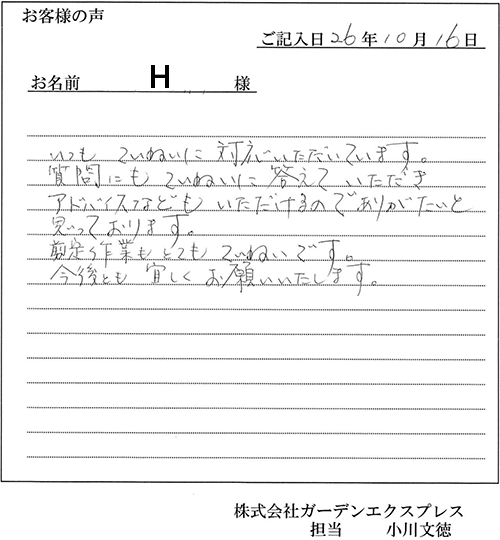 お客様の声
ご記入日 26年10月16日
お名前 H 様
いつも ていねいに 対応いただいています。
質問にも ていねいに 答えて いただき
アドバイスなども いただけるので ありがたいと
思っております。
剪定作業も とても ていねい です。
今後とも 宜しく お願いいたします。
株式会社ガーデンエクスプレス
担当 小川文徳